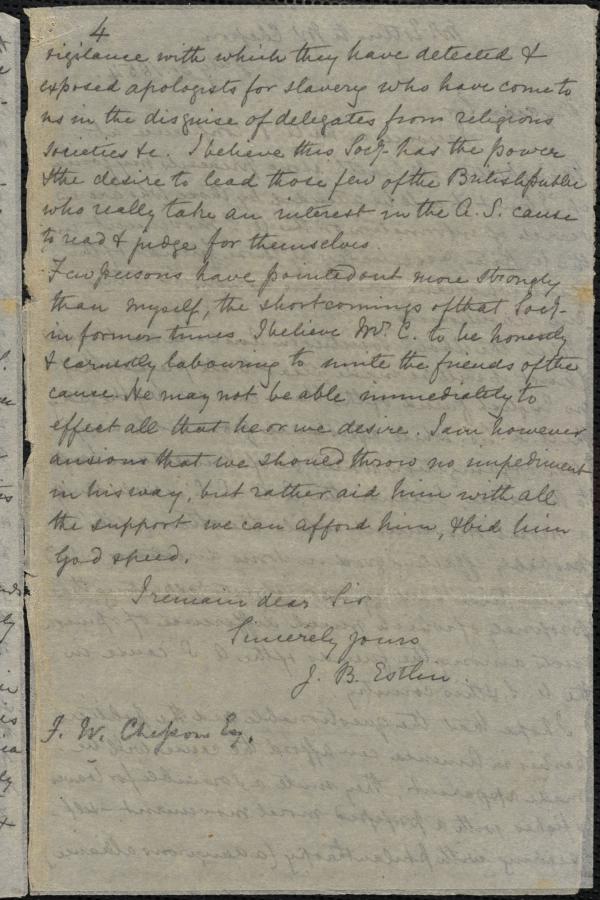 4
vigilance with which they have detected &
exposed apologists for slavery who have come to
us in the disguise of delegates from religious
societies &c. I believe this Socy. has the power
& the desire to lead those few of the British public
who really take an interest in the A. S. cause
to read & judge for themselves.
Few persons have pointed out more strongly
than myself, the shortcomings of that Socy.
in former times. I believe Mr. C. to be honestly
& earnestly labouring to unite the friends of the
cause. He may not be able immediately to
effect all that he or we desire. I am however
anxious that we should throw no impediment
in his way, but rather aid him with all
the support we can afford him, & bid him
God speed.
I remain dear Sir
Sincerely yours
J. B. Estlin
F. W. Chesson Esq.